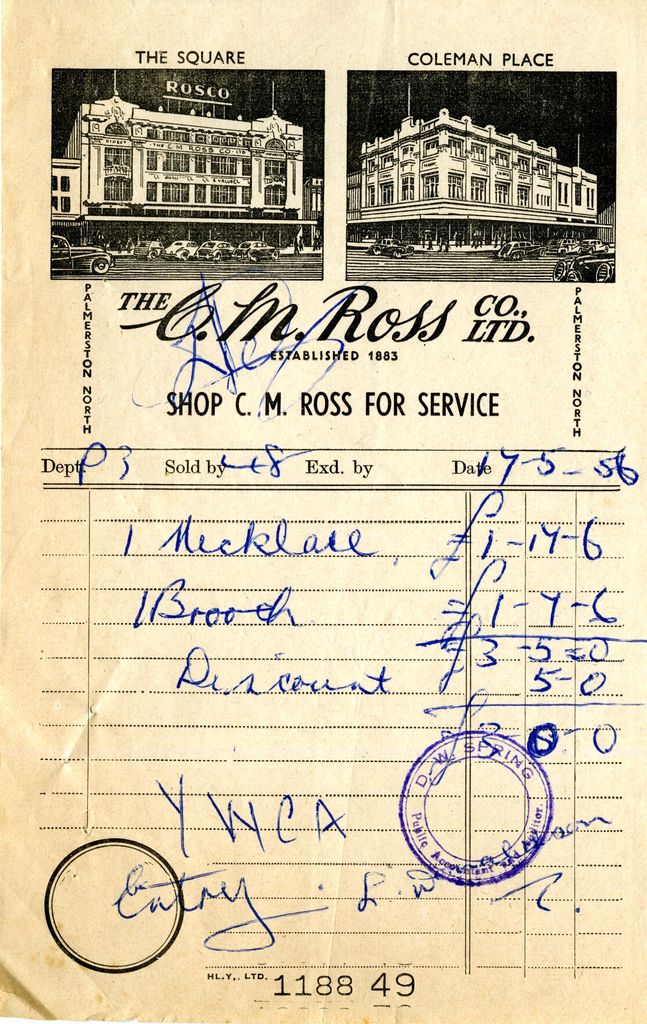 THE SQUARE
COLEMAN PLACE
ROSCO
THE C. M. ROSS CO. LTD
PALMERSTON NORTH
THE C. M. Ross CO., LTD.
PALMERSTON NORTH
ESTABLISHED 1883
SHOP C. M. ROSS FOR SERVICE
Dept. P 3 Sold by 48 Exd. by Date 17-5-56
1 Necklace £1-17-6
1 Brooch £1-7-6
£3-5-0
Discount 5-0
£3-0-0
D. W. SPRING
Public Accountant and Auditor.
YWCA
Entry
HL.Y., LTD. 1188 49